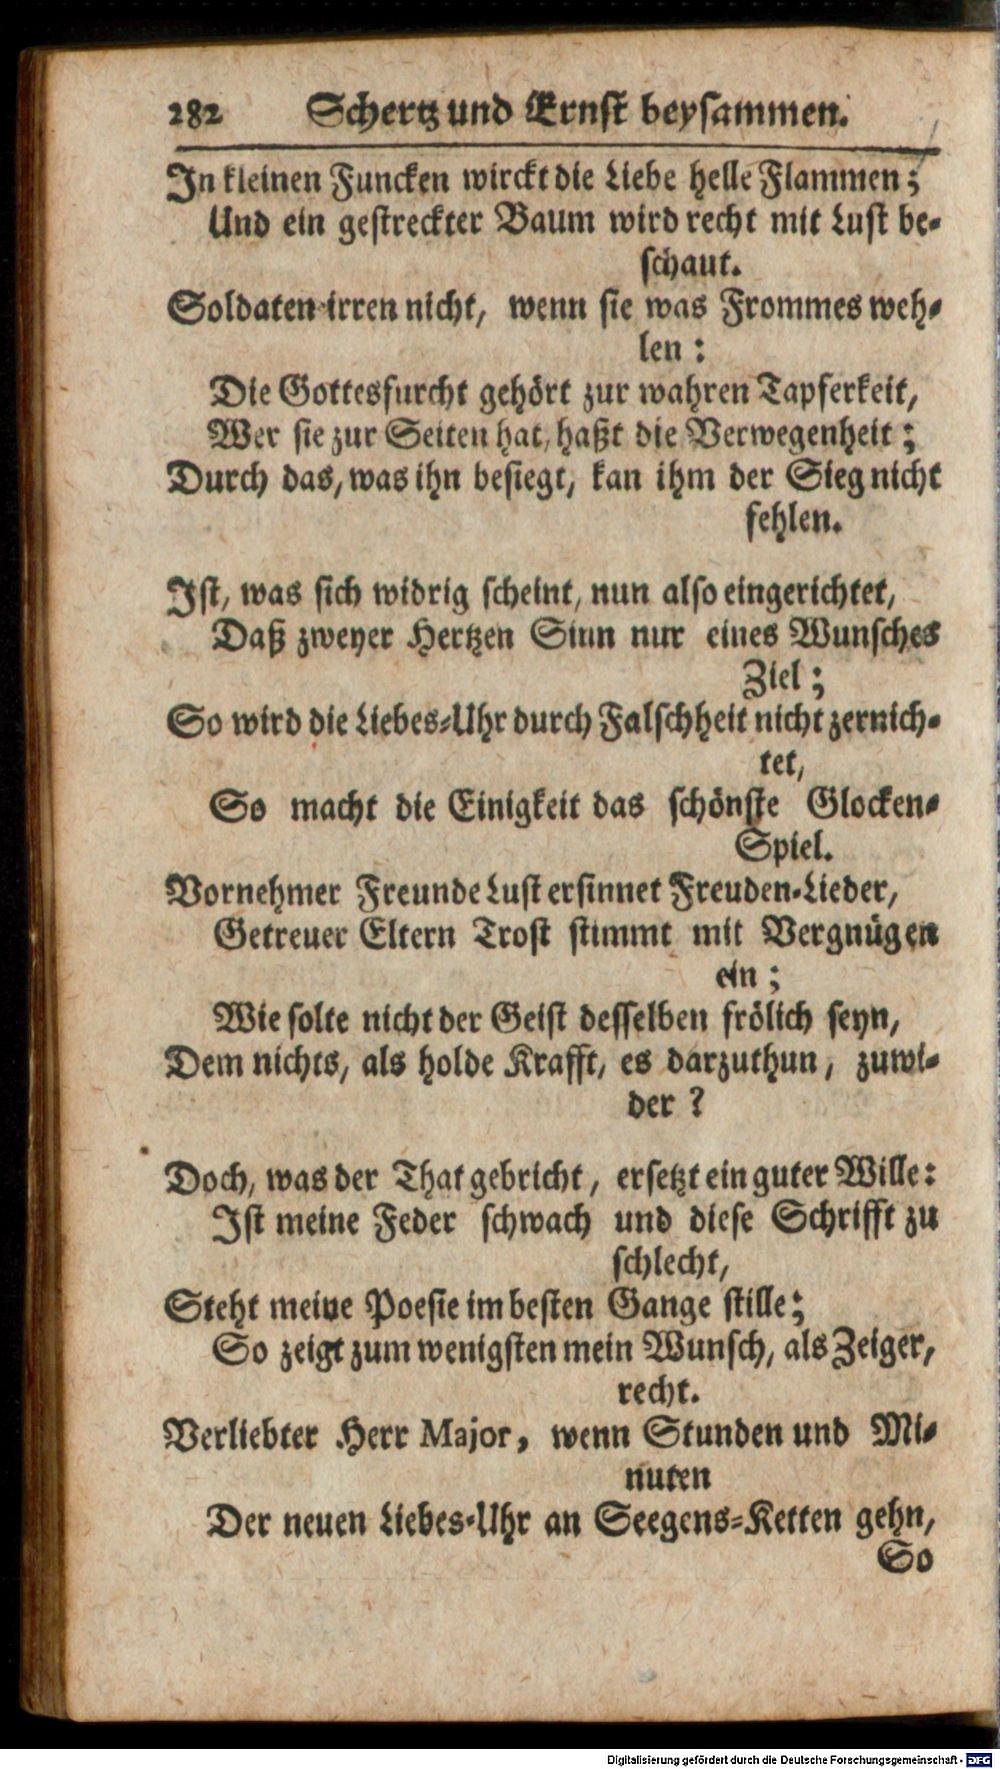 282 Schertz und Ernst beysammen.
In kleinen Funcken wirckt die Liebe helle Flammen;
Und ein gestreckter Baum wird recht mit Lust be-
schaut.
Soldaten irren nicht, wenn sie was Frommes weh-
len:
Die Gottesfurcht gehört zur wahren Tapferkeit,
Wer sie zur Seiten hat, haßt die Verwegenheit;
Durch das, was ihn besiegt, kan ihm der Sieg nicht
fehlen.
Ist, was sich widrig scheint, nun also eingerichtet,
Daß zweyer Hertzen Sinn nur eines Wunsches
Ziel;
So wird die Liebes-Uhr durch Falschheit nicht zernich-
tet,
So macht die Einigkeit das schönste Glocken-
Spiel.
Vornehmer Freunde Lust ersinnet Freuden-Lieder,
Getreuer Eltern Trost stimmt mit Vergnügen
ein;
Wie solte nicht der Geist desselben frölich seyn,
Dem nichts, als holde Krafft, es darzuthun, zuwi-
der?
Doch, was der That gebricht, ersetzt ein guter Wille:
Ist meine Feder schwach und diese Schrifft zu
schlecht,
Steht meine Poesie im besten Gange stille;
So zeigt zum wenigsten mein Wunsch, als Zeiger,
recht.
Verliebter Herr Major, wenn Stunden und Mi-
nuten
Der neuen Liebes-Uhr an Seegens-Ketten gehn,
So
Digitalisierung gefördert durch die Deutsche Forschungsgemeinschaft - DFG